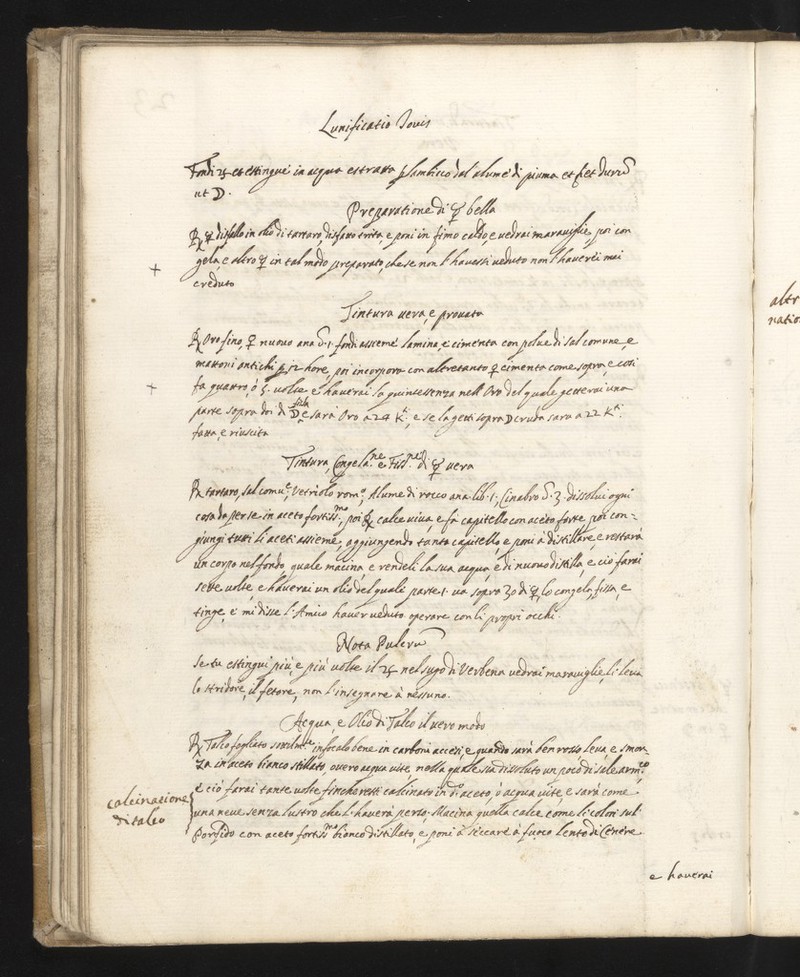 Lunificatio Jovis
Fondi ♃ et estingue in acqua estratta p lambicco dal'alume di piuma et fiet durũ
ut ☽.
Preparatione di ☿ bella
℞ ☿ disfallo in olio di tartaro, disfatto trita e poni in fimo caldo, e vedrai maraviglie, poi con
gela, e altro ☿ in tal modo preparato, che se non l'havessi veduto non l'haverei mai
+
creduto
Tintura vera, e provata
℞ Oro fino, ☿ nuovo ana ℥.1. fondi assieme lamina, e cimenta con polve di sal comune, e
mattoni antichi p 12 hore, poi incorpora con altretanto ☿ cimenta come sopra, e così
+
fa quattro, ó 5. volte e haverai la quintessenza nell'Oro del quale getterai una
fissa
parte sopra doi di ☽, e sarà Oro a 24 K.ti, e se la getti sopra ☽ cruda sarà a 22 K.ti
fatta, e riuscita
Tintura, Congela.ne e Fiss.ne di ☿ vera
℞ tartaro, sal comu.e, Vetriolo rom.o, Alume di rocco ana lib.1., Cinabro ℥.3. dissolvi ogni
cosa da per se in aceto fortiss.mo, poi ℞ calce viva, e fà capitello con aceto forte, poi con=
giungi tutti li aceti assieme, aggiungendo tanto capitello, e poni à distillare, e restarà
un corpo nel fondo, quale macina e rendeli la sua acqua, e di nuovo distilla, e ciò farai
sette volte, e haverai un olio del quali parte 1. va sopra 30 di ☿, lo congela, fissa, e
tinge, e mi disse l'Amico haver veduto operare con li propri occhi.
Nota Pulcrũ
Se tu estingui più, e più volte il ♃ nel sugo di Verbena vedrai maraviglie, li leva
lo stridore, il fetore, non l'insegnare à nessuno.
Acqua, e Olio di Talco il vero modo
℞ Talco fogliato infocalo bene in carboni accesi, e quando sarà ben rosso leva, e smor=
za in aceto bianco stillato, overo acqua vite, nella quale sia dissoluto un poco di sale arm.co
e ciò farai tante volte finche resti calcinato in d.o aceto, ò acqua vite, e sarà come
calcinatione
di talco
una neve senza lustro che l'haverà perso. Macina quella calce come li colori sul
Porfido con aceto fortiss.mo bianco distillato, e poni à siccare à fuoco lento di Cenere
e haverai
altr
natio